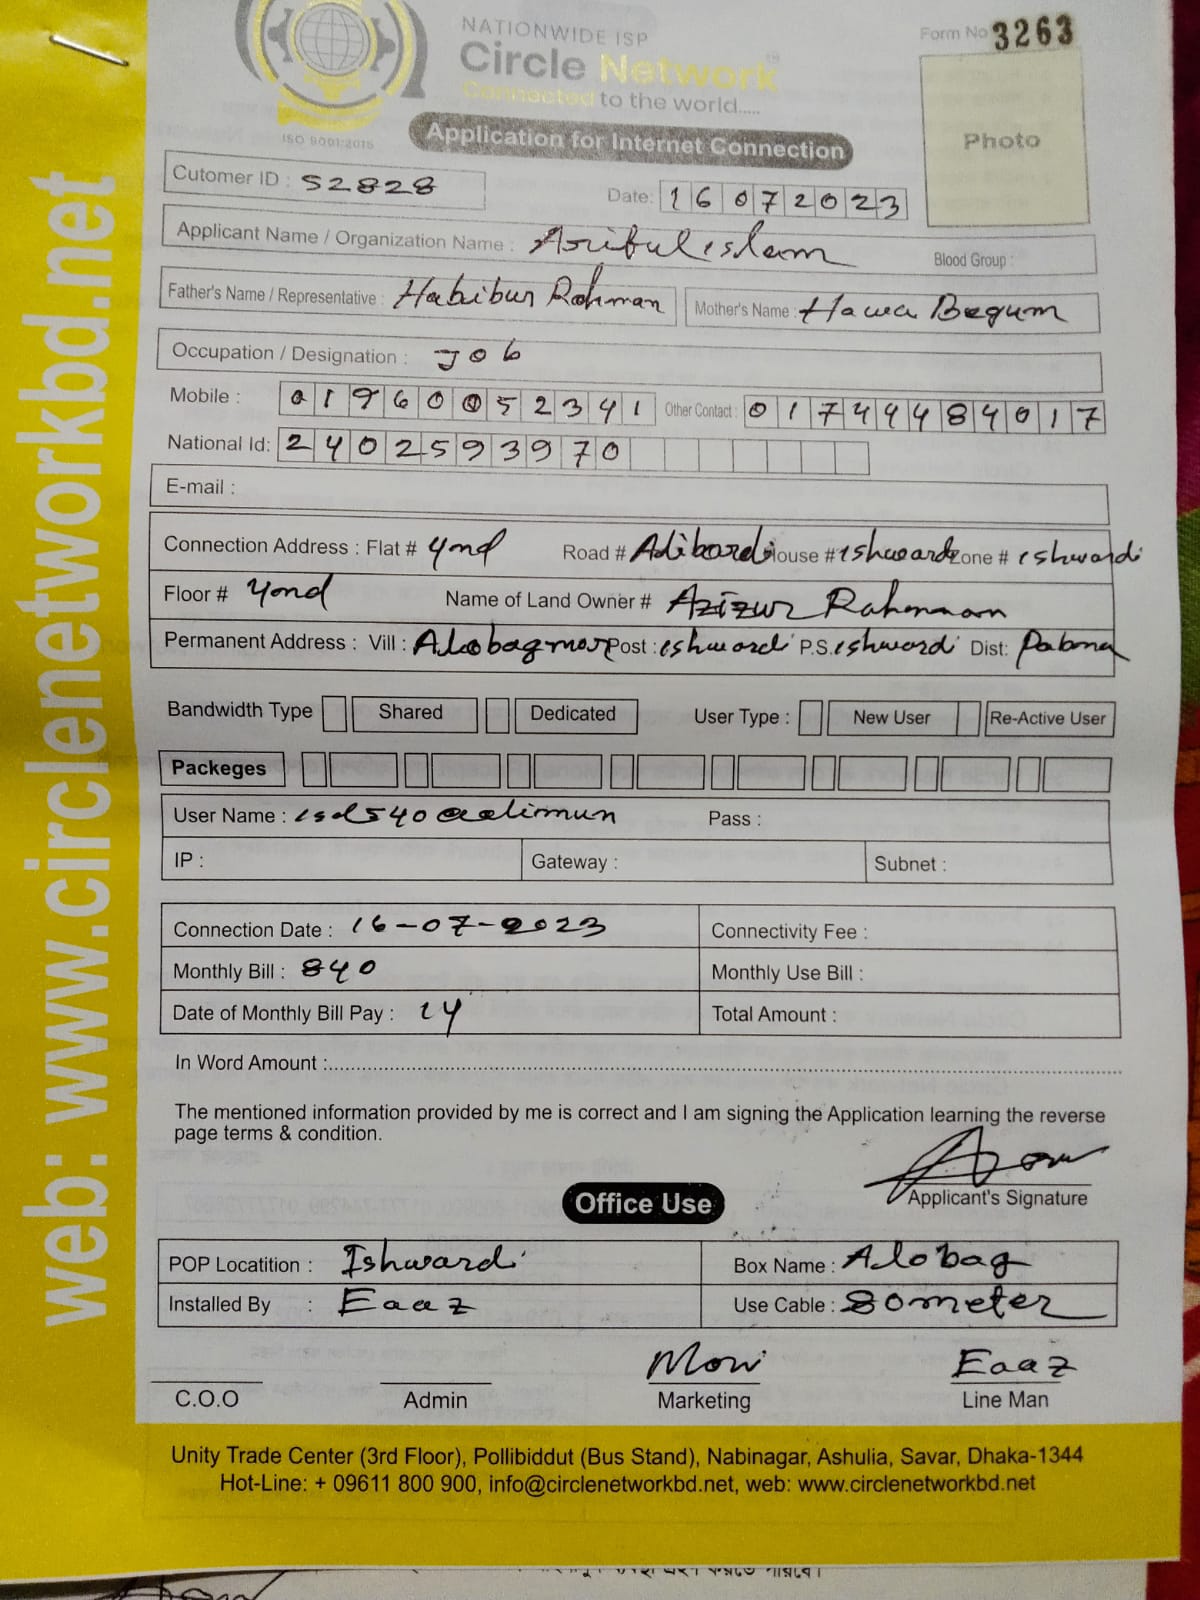 NATIONWIDE ISP
Circle Network
Connected to the world.....
ISO 9001:2015
Form No 3263
Photo
Application for Internet Connection
Cutomer ID : 52828
Date: 16072023
Applicant Name / Organization Name : Ariful islam
Blood Group :
Father's Name / Representative : Habibur Rahman
Mother's Name : Hawa Begum
Occupation / Designation : Job
Mobile : 01960052341
Other Contact : 01744484017
National Id: 2402593970
E-mail :
Connection Address : Flat # Road # House # ishwardi Zone # ishwardi
Floor # Name of Land Owner # Azizur Rahman
Permanent Address : Vill : Alobagmor Post : ishwardi P.S. ishwardi Dist: Pabna
Bandwidth Type Shared Dedicated User Type : New User Re-Active User
Packeges
User Name : Pass :
IP : Gateway : Subnet :
Connection Date : 16-07-2023 Connectivity Fee :
Monthly Bill : 840 Monthly Use Bill :
Date of Monthly Bill Pay : 14 Total Amount :
In Word Amount :
The mentioned information provided by me is correct and I am signing the Application learning the reverse
page terms & condition.
Applicant's Signature
Office Use
POP Locatition : Ishwardi Box Name : Alobag
Installed By : Eaaz Use Cable : 80meter
Eaaz
C.O.O Admin Marketing Line Man
Unity Trade Center (3rd Floor), Pollibiddut (Bus Stand), Nabinagar, Ashulia, Savar, Dhaka-1344
Hot-Line: + 09611 800 900, info@circlenetworkbd.net, web: www.circlenetworkbd.net
web: www.circlenetworkbd.net